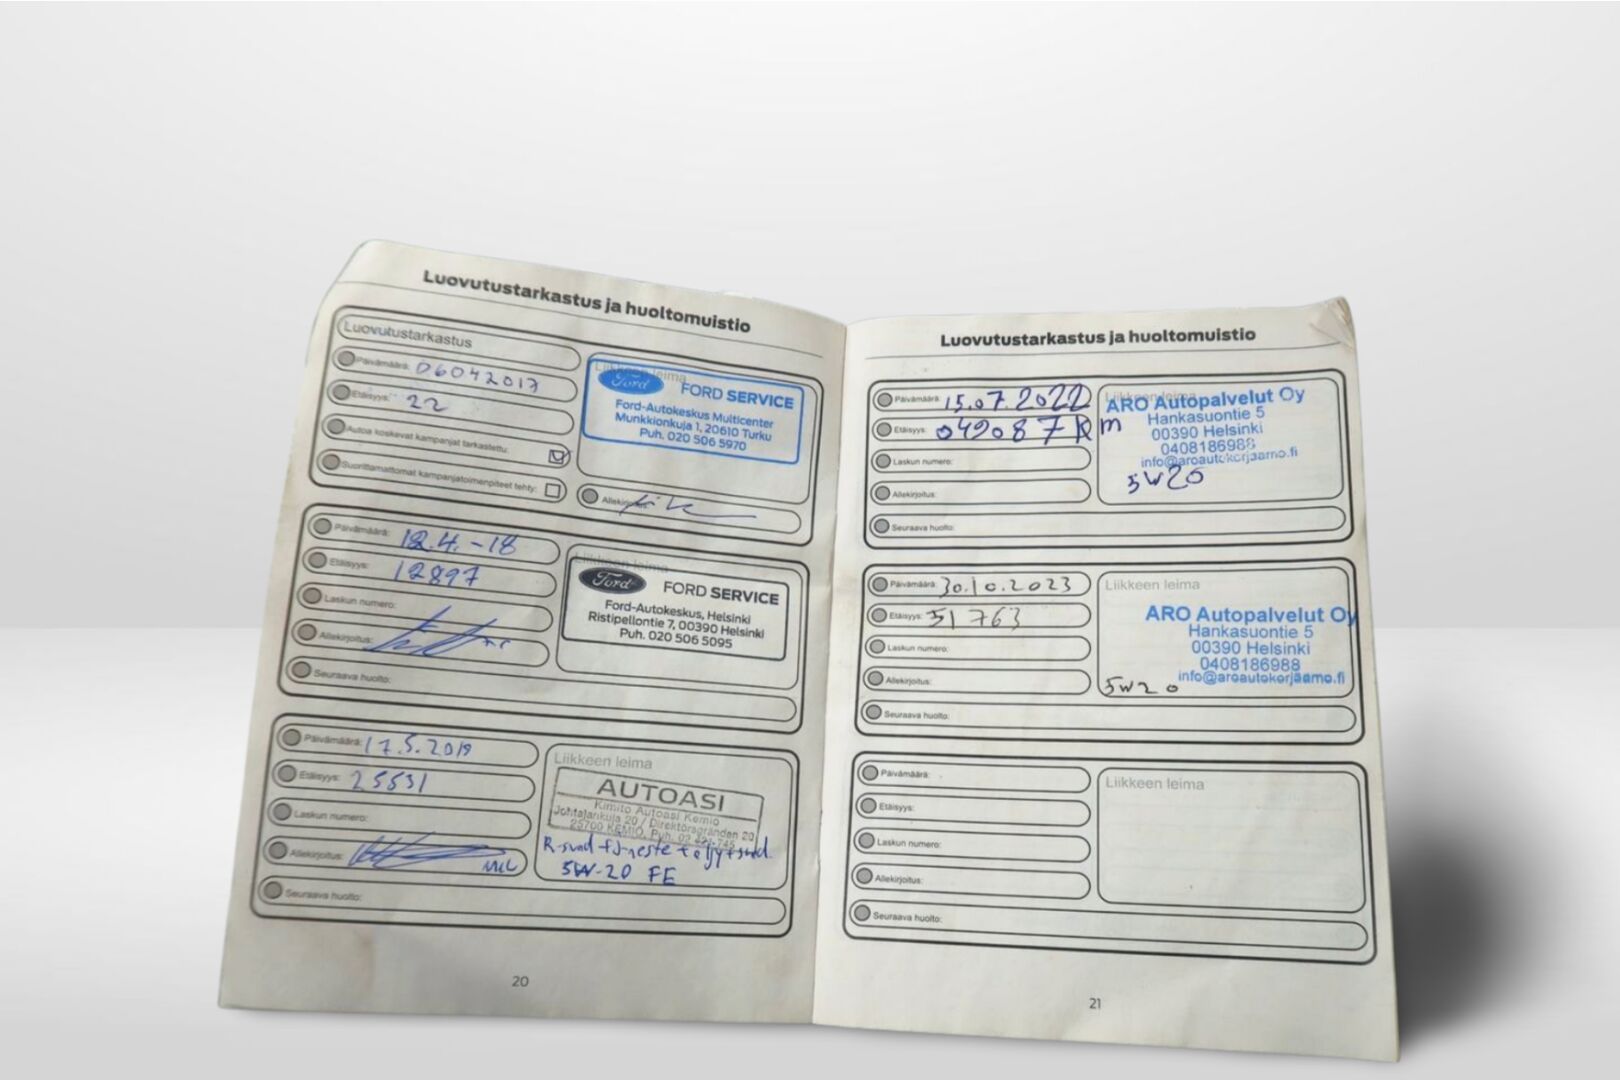 Luovutustarkastus ja huoltomuistio
Luovutustarkastus
Päivämäärä: 06042017
Etäisyys: 22
Autoa koskevat kampanjat tarkastettu:
Suorittamattomat kampanjatoimenpiteet tehty:
Liikkeen leima
Ford FORD SERVICE
Ford-Autokeskus Multicenter
Munkkionkuja 1, 20610 Turku
Puh. 020 506 5970
Allekirjoitus:
Päivämäärä: 12.4.-18
Etäisyys: 12897
Laskun numero:
Allekirjoitus:
Seuraava huolto:
Liikkeen leima
Ford FORD SERVICE
Ford-Autokeskus, Helsinki
Ristipellontie 7, 00390 Helsinki
Puh. 020 506 5095
Päivämäärä: 17.5.2019
Etäisyys: 25531
Laskun numero:
Allekirjoitus:
Seuraava huolto:
Liikkeen leima
AUTOASI
Kimito Autoasi Kemio
20 / Direktörsgränden 20
25700 KEMIÖ, Puh. 02
R-suod + J-neste + öljy + suod.
5W-20 FE
20
Luovutustarkastus ja huoltomuistio
Päivämäärä: 15.07.2022
Etäisyys: 049087 Km
Laskun numero:
Allekirjoitus:
Seuraava huolto:
Liikkeen leima
ARO Autopalvelut Oy
Hankasuontie 5
00390 Helsinki
0408186988
info@aroautokorjaamo.fi
5W20
Päivämäärä: 30.10.2023
Etäisyys: 51 763
Laskun numero:
Allekirjoitus:
Seuraava huolto:
Liikkeen leima
ARO Autopalvelut Oy
Hankasuontie 5
00390 Helsinki
0408186988
info@aroautokorjaamo.fi
5W20
Päivämäärä:
Etäisyys:
Laskun numero:
Allekirjoitus:
Seuraava huolto:
Liikkeen leima
21